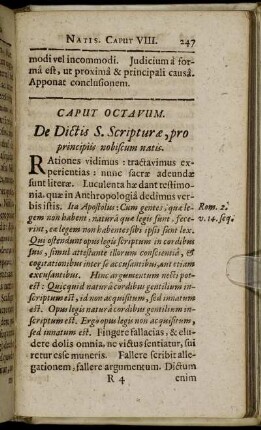 NATIS. CAPUT VIII. 247
modi vel incommodi. Judicium à for-
mâ est, ut proximâ & principali causâ.
Apponat conclusionem.
CAPUT OCTAVUM.
De Dictis S. Scripturæ, pro
principiis nobiscum natis.
RAtiones vidimus: tractavimus ex-
perientias: nunc sacræ adeundæ
sunt literæ. Luculenta hæ dant testimo-
nia, quæ in Anthropologiâ dedimus ver-
bis istis. Ita Apostolus: Cum gentes, quæ le-
gem non habent, naturâ quæ legis sunt, fece-
rint, ea legem non habentes sibi ipsi sunt lex.
Rom. 2.
v. 14. seq.
Qui ostendunt opus legis scriptum in cordibus
suis, simul attestante illorum conscientiâ, &
cogitationibus inter se accusantibus, aut etiam
excusantibus. Hinc argumentum necti pot-
est: Quicquid naturâ cordibus gentilium in-
scriptum est, id non acquisitum, sed innatum
est. Opus legis naturâ cordibus gentilium in-
scriptum est. Ergò opus legis non acquisitum,
sed innatum est. Fingere fallacias, & elu-
dere dolis omnia, ne victus sentiatur, sui
retur esse muneris. Fallere scribit alle-
gationem, fallere argumentum. Dictum
R 4 enim